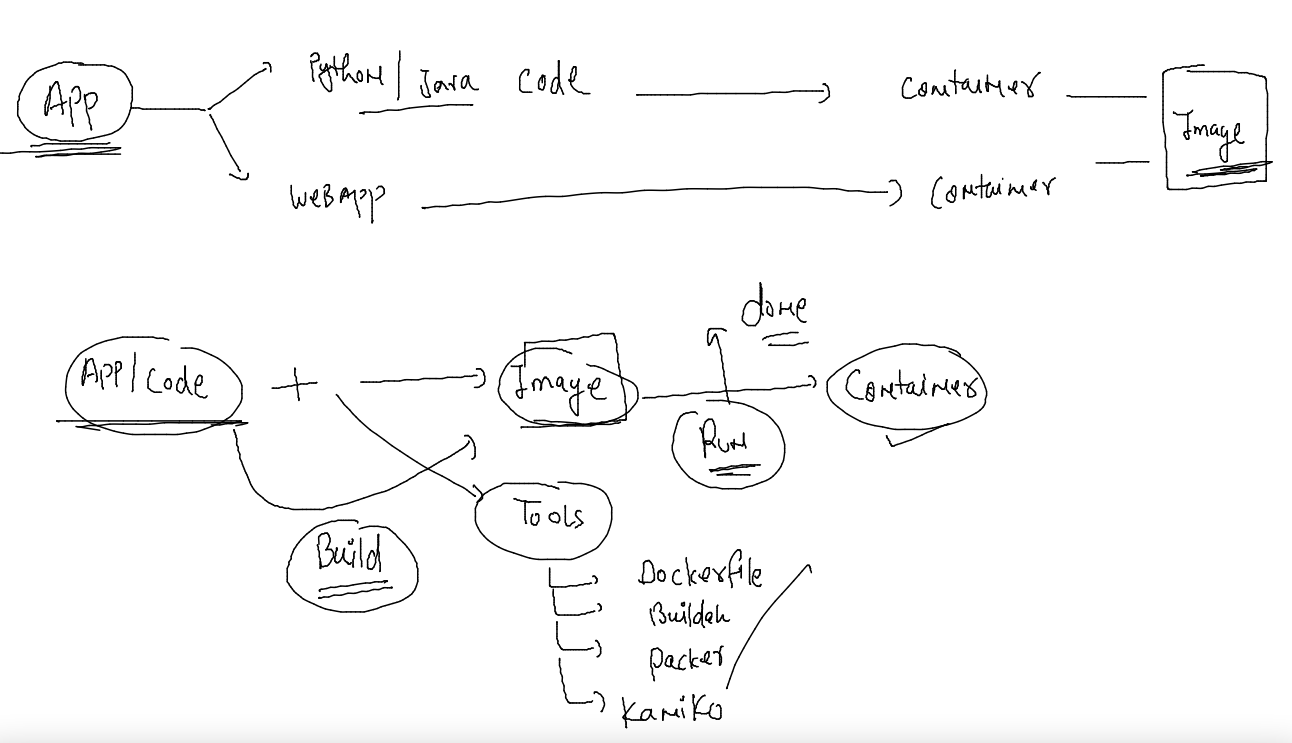 App
Python/Java Code
Container
Image
WEBAPP
Container
done
App/Code +
Image
Container
Run
Tools
Build
Dockerfile
Buildah
Packer
Kaniko